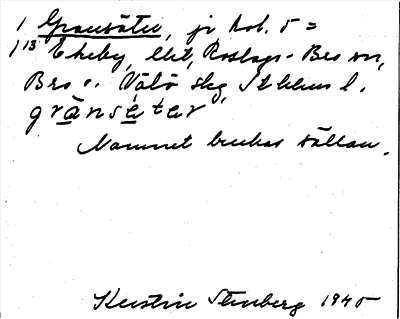 1 Gransäter, jr kol. 5 =
1/13 Ekeby, lht, Roslags-Bro sn,
Bro o. Vätö skg, Sthlms l.
gränsétar
Namnet brukas sällan.
Kerstin Stenberg 1945